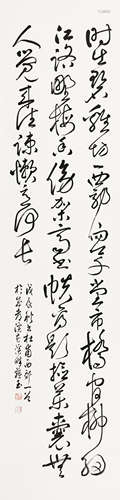 时出碧雞坊西郊向草堂市橋官柳細
江路野梅香傍架齊書帙看題檢藥囊無
人覺來往疎懶意何長
戊辰秋书杜甫西郊